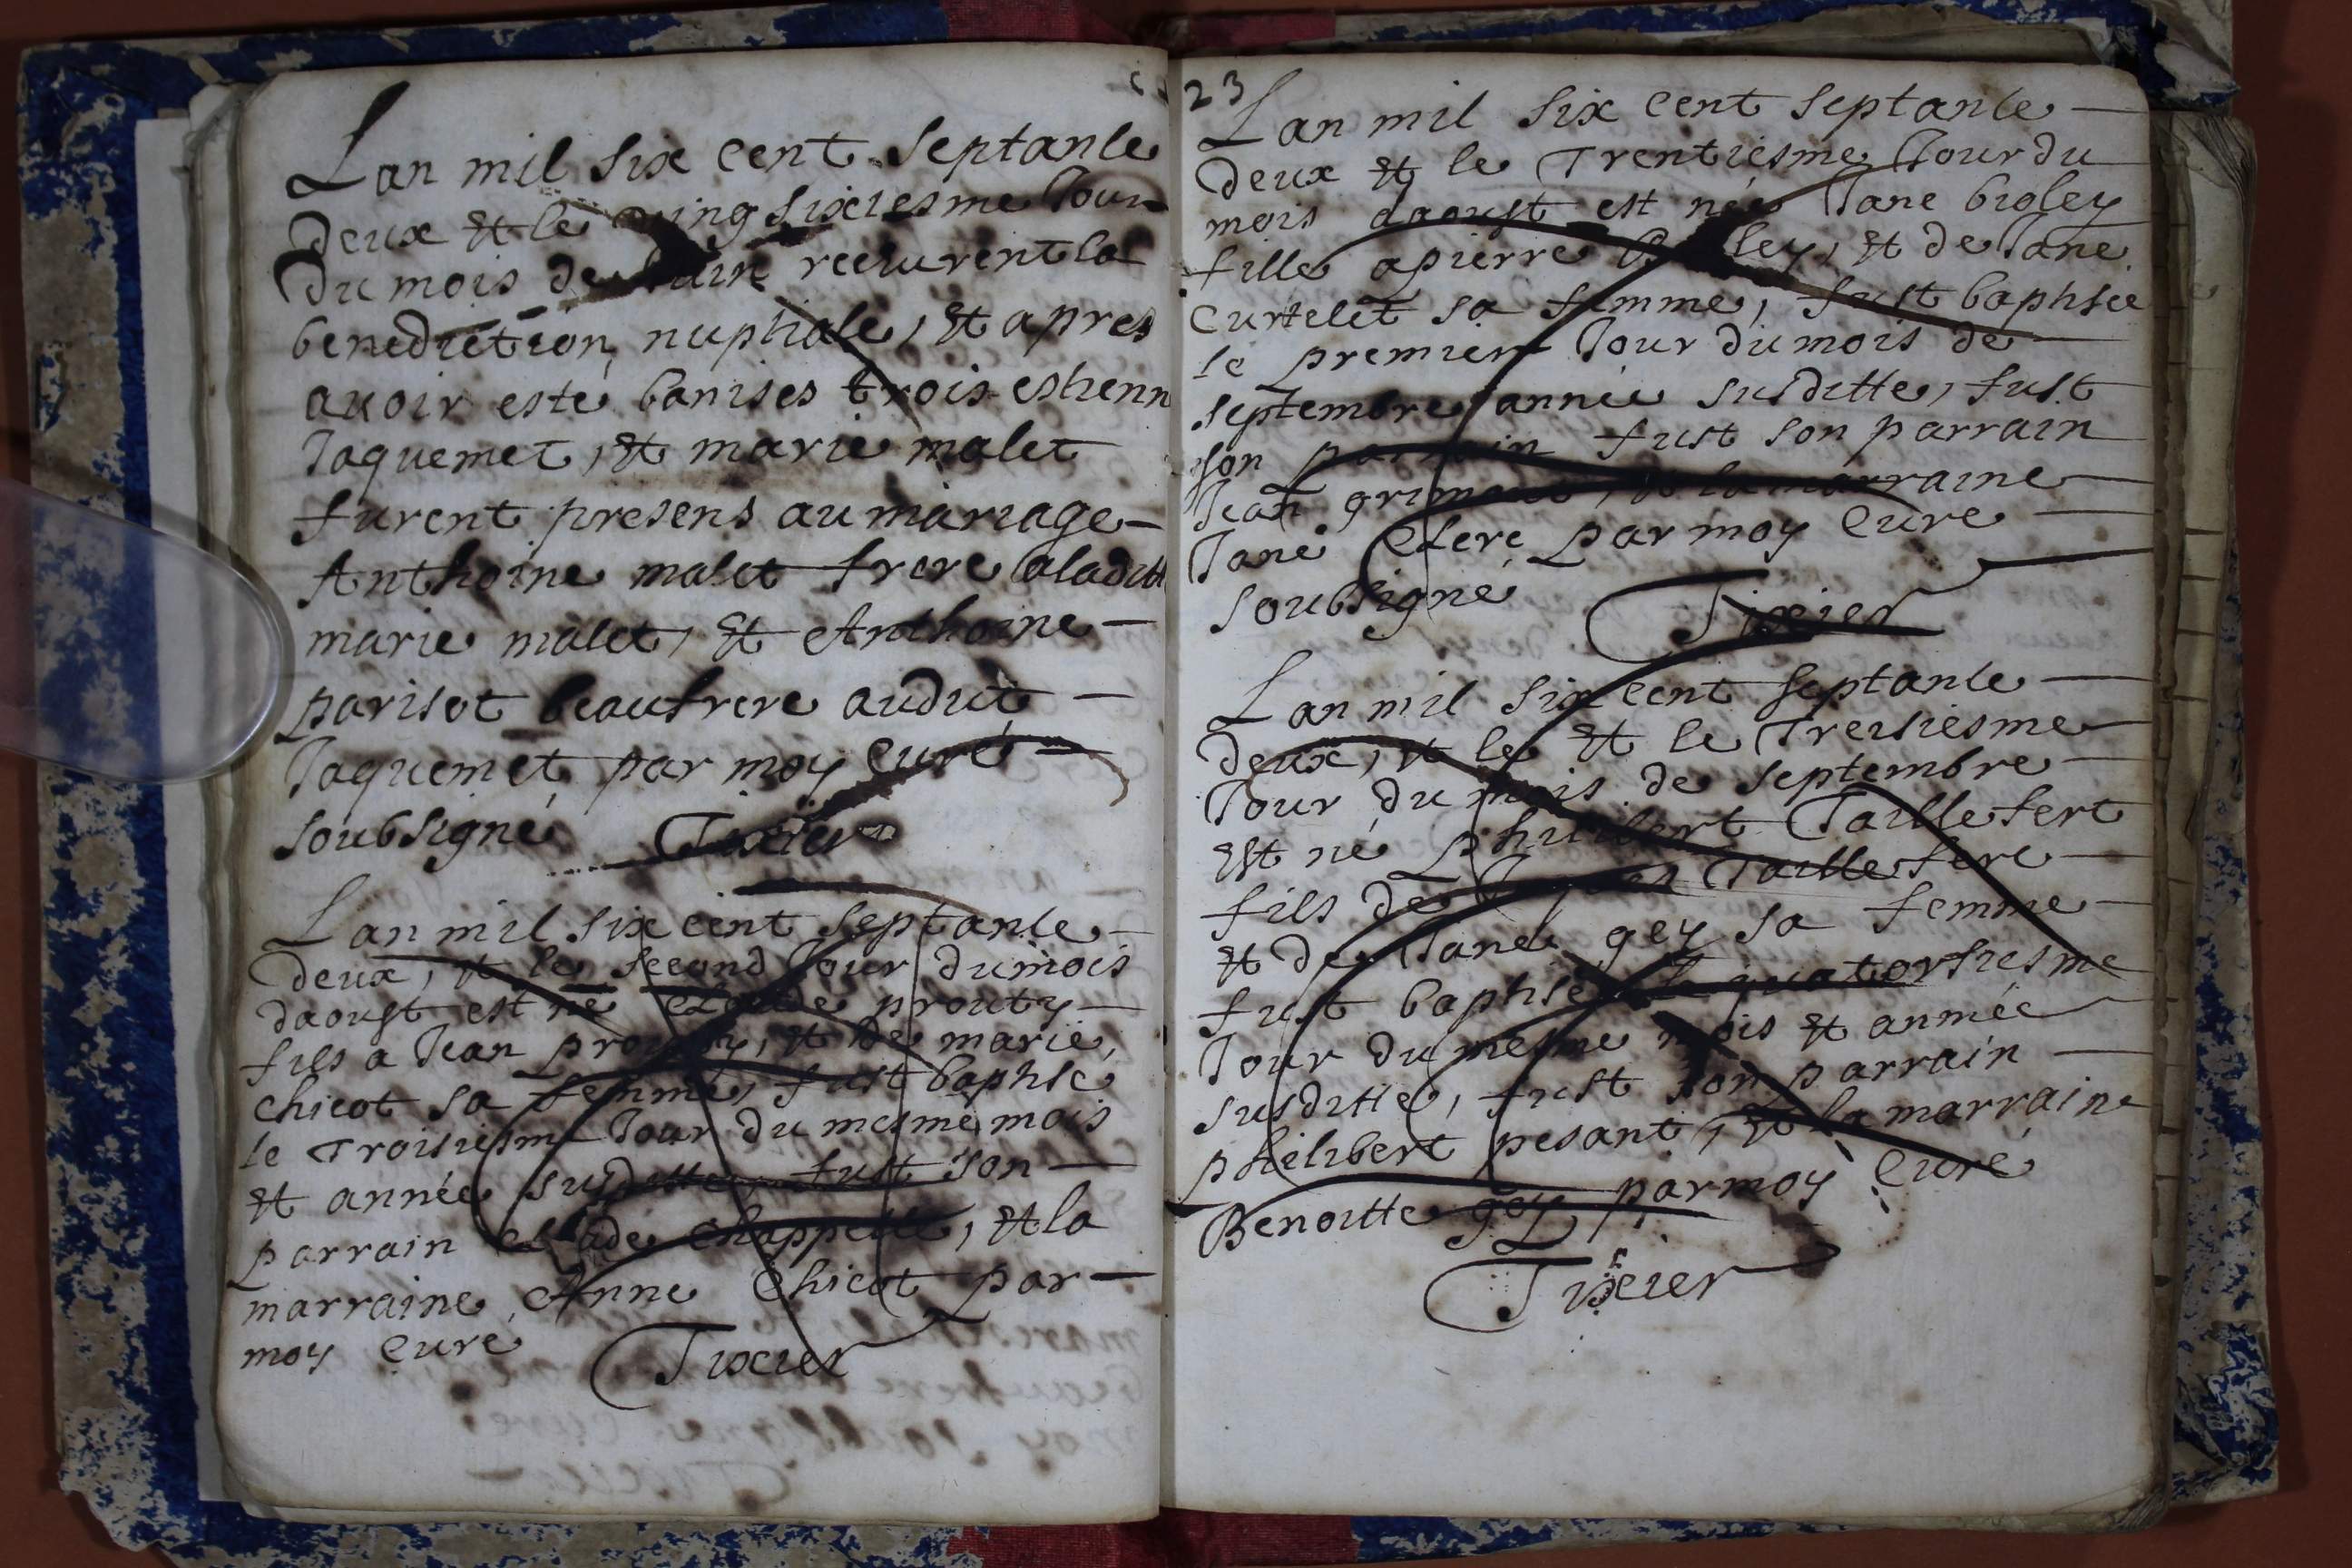 Lan mil six cent septante
deux et le ving sixiesme Jour
du mois de receurent la
benediction nuptiale, et apres
auoir esté banises trois estienn
Jaquemet, et marie malet
furent presens au mariage
Anthoine malet frere aladitt
marie malet, et Anthoine
parisot beaufrere audit
Jaquemet par moy curé
soubsigné Tixier
Lan mil six cent septante
deux, et le second Jour du mois
daoust est né claude prouty
fils a Jean prouty, et de marie
chicot sa femme, fust baptisé
le Troisiesme Jour du mesme mois
et année susditte fust son
parrain claude chappelle, et la
marraine Anne chicot par
moy curé
Tixier
23
Lan mil six cent septante
deux et le Trentiesme Jour du
mois daoust est née Jane broley
fille a pierre broley, et de Jane
Curtelet sa femme, fust baptisée
le premier Jour du mois de
septembre année susditte, fust
son parrain fust son parrain
Jean et la marraine
Jane par moy Curé
soubsigné
Tixier
Lan mil six cent septante
deux, et le et le Treisiesme
Jour du mois de septembre
est né philibert Taillefert
fils de Taillefert
et de Jane gey sa femme
fust baptisé le quatorsiesme
Jour du mesme mois et année
susditte, fust son parrain
philibert pesant, et la marraine
Benoitte gey par moy Curé
Tixier